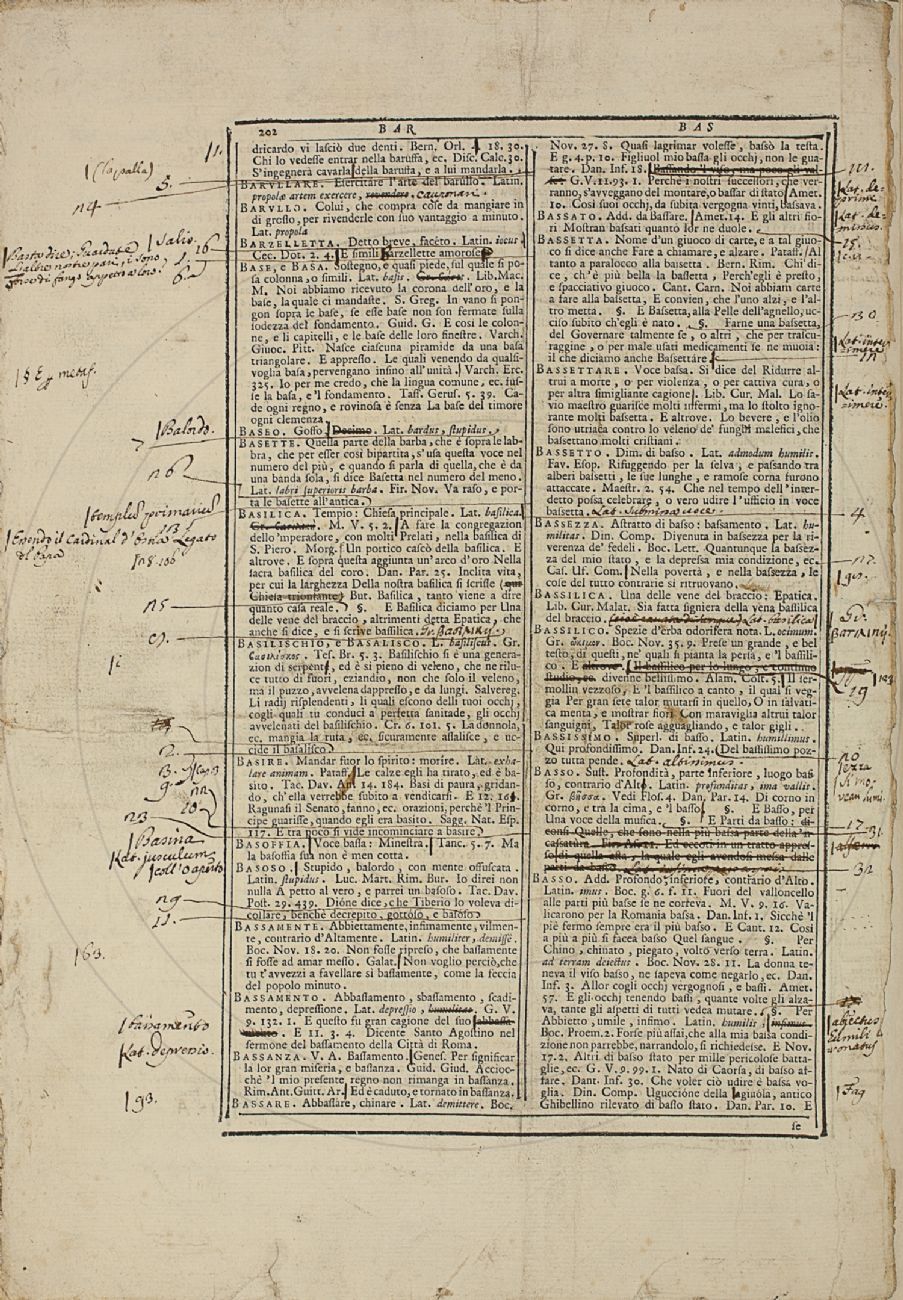 202
BAR
BAS
dricardo vi lasciò due denti. Bern. Orl. 18. 30.
Chi lo vedesse entrar nella baruffa, ec. Disc. Calc. 30.
S'ingegnerà cavarla della baruffa, e a lui mandarla.
BARULLARE. Esercitare l'arte del barullo. Latin.
propolæ artem exercere,
BARULLO. Colui, che compra cose da mangiare in
di grosso, per rivenderle con suo vantaggio a minuto.
Lat. propola
BARZELLETTA. Detto breve, faceto. Latin. iocus
Cec. Dot. 2. 4. E simili Barzellette amorose
BASE, e BASA. Sostegno, e quasi piede, sul quale si po-
sa colonna, o simili. Lat. basis. Lib. Mac.
M. Noi abbiamo ricevuto la corona dell'oro, e la
base, la quale ci mandaste. S. Greg. In vano si pon-
gon sopra le base, se esse base non son fermate sulla
sodezza del fondamento. Guid. G. E così le colon-
ne, e li capitelli, e le base delle loro finestre. Varch.
Giuoc. Pitt. Nasce ciascuna piramide da una basa
triangolare. E appresso. Le quali venendo da qualsi-
voglia basa, pervengano insino all'unità. Varch. Erc.
325. Io per me credo, che la lingua comune, ec. fus-
se la basa, e 'l fondamento. Tass. Gerus. 5. 39. Ca-
de ogni regno, e rovinosa è senza La base del timore
ogni clemenza
BASEO. Goffo, Decimo. Lat. bardus, stupidus.
BASETTE. Quella parte della barba, che è sopra le lab-
bra, che per esser così bipartita, s'usa questa voce nel
numero del più, e quando si parla di quella, che è da
una banda sola, si dice Basetta nel numero del meno.
Lat. labri superioris barba. Fir. Nov. Va raso, e por-
ta le basette all'antica.
BASILICA. Tempio: Chiesa principale. Lat. basilica.
M. V. 5. 2. A fare la congregazion
dello 'mperadore, con molti Prelati, nella basilica di
S. Piero. Morg. Un portico cascò della basilica. E
altrove. E sopra questa aggiunta un'arco d'oro Nella
sacra basilica del coro. Dan. Par. 25. Inclita vita,
per cui la larghezza Della nostra basilica si scrisse (qui
Chiesa trionfante) But. Basilica, tanto viene a dire
quanto casa reale. §. E Basilica diciamo per Una
delle vene del braccio, altrimenti detta Epatica, che
anche si dice, e si scrive basilica.
BASILISCHIO, e BASALISCO. L. basiliscus. Gr.
Tes. Br. 5. 3. Basilischio si è una genera-
zion di serpenti, ed è sì pieno di veleno, che ne rilu-
ce tutto di fuori, eziandio, non che solo il veleno,
ma il puzzo, avvelena dappresso, e da lungi. Salvereg.
Li radij risplendenti, li quali escono delli tuoi occhj,
cogli quali tu conduci a perfetta sanitade, gli occhj
avvelenati del basilischio. Cr. 6. 101. 5. La donnola,
ec. mangia la ruta, ec. sicuramente assalisce, e uc-
cide il basalisco
BASIRE. Mandar fuor lo spirito: morire. Lat. exha-
lare animam. Pataff. Le calze egli ha tirato, ed è ba-
sito. Tac. Dav. An. 14. 184. Basì di paura, gridan-
do, ch'ella verrebbe subito a vendicarsi. E 12. 161.
Ragunasi il Senato, fanno, ec. orazioni, perchè 'l Prin-
cipe guarisse, quando egli era basito. Sagg. Nat. Esp.
117. E tra poco si vide incominciare a basire
BASOFFIA. Voce bassa: Minestra. Tanc. 5. 7. Ma
la basoffia sua non è men cotta.
BASOSO. Stupido, balordo, con mente offuscata.
Latin. stupidus. Luc. Mart. Rim. Bur. Io direi non
nulla A petto al vero, e parrei un basoso. Tac. Dav.
Post. 29. 439. Dióne dice, che Tiberio lo voleva di-
collare, benchè decrepito, gottoso, e basoso
BASSAMENTE. Abbiettamente, infimamente, vilmen-
te, contrario d'Altamente. Latin. humiliter, demissè.
Boc. Nov. 18. 20. Non fosse ripreso, che bassamente
si fosse ad amar messo. Galat. Non voglio perciò, che
tu t'avvezzi a favellare sì bassamente, come la feccia
del popolo minuto.
BASSAMENTO. Abbassamento, sbassamento, scadi-
mento, depressione. Lat. depressio, humilitas. G. V.
9. 132. 1. E questo fu gran cagione del suo abbassa-
mento. E 11. 3. 4. Dicente Santo Agostino nel
sermone del bassamento della Città di Roma.
BASSANZA. V. A. Bassamento. Genes. Per significar
la lor gran miseria, e bassanza. Guid. Giud. Accioc-
chè 'l mio presente regno non rimanga in bassanza.
Rim. Ant. Guitt. Ar. Ed è caduto, e tornato in bassanza.
BASSARE. Abbassare, chinare. Lat. demittere. Boc.
Nov. 27. 8. Quasi lagrimar volesse, bassò la testa.
E g. 4. p. 10. Figliuol mio bassa gli occhj, non le gua-
tare. Dan. Inf. 18. Bassando 'l viso, ma poco gli val-
se G. V. 11. 93. 1. Perchè i nostri successori, che ver-
ranno, s'avveggano del montare, o bassar di stato Amet.
10. Così suoi occhj, da subita vergogna vinti, bassava.
BASSATO. Add. da Bassare. Amet. 14. E gli altri fio-
ri Mostran bassati quanto lor ne duole.
BASSETTA. Nome d'un giuoco di carte, e a tal giuo-
co si dice anche Fare a chiamare, e alzare. Pataff. Al
tanto a paralocco alla bassetta. Bern. Rim. Chi di-
ce, ch'è più bella la bassetta, Perch'egli è presto,
e spacciativo giuoco. Cant. Carn. Noi abbiam carte
a fare alla bassetta, E convien, che l'uno alzi, e l'al-
tro metta. §. E Bassetta, alla Pelle dell'agnello, uc-
ciso subito ch'egli è nato. §. Farne una bassetta,
del Governare talmente se, o altri, che per trascu-
raggine, o per male usati medicamenti se ne muoia:
il che diciamo anche Bassettare
BASSETTARE. Voce bassa. Si dice del Ridurre al-
trui a morte, o per violenza, o per cattiva cura, o
per altra simigliante cagione. Lib. Cur. Mal. Lo sa-
vio maestro guarisce molti infermi, ma lo stolto igno-
rante molti bassetta. E altrove. Lo bevere, e l'olio
sono utriaca contro lo veleno de' funghi malefici, che
bassettano molti cristiani.
BASSETTO. Dim. di basso. Lat. admodum humilis.
Fav. Esop. Rifuggendo per la selva, e passando tra
alberi bassetti, le sue lunghe, e ramose corna furono
attaccate. Maestr. 2. 54. Che nel tempo dell'inter-
detto possa celebrare, o vero udire l'ufficio in voce
bassetta. Lat. submissa voce.
BASSEZZA. Astratto di basso: bassamento. Lat. hu-
militas. Din. Comp. Divenuta in bassezza per la ri-
verenza de' fedeli. Boc. Lett. Quantunque la bassez-
za del mio stato, e la depressa mia condizione, ec.
Cas. Uf. Com. Nella povertà, e nella bassezza, le
cose del tutto contrarie si ritruovano.
BASSILICA. Una delle vene del braccio: Epatica.
Lib. Cur. Malat. Sia fatta signiera della vena bassilica
del braccio.
BASSILICO. Spezie d'erba odorifera nota. L. ocimum.
Gr. Boc. Nov. 35. 9. Prese un grande, e bel
testo, di questi, ne' quali si pianta la persa, e 'l bassili-
co. E altrove. Il bassilico per lo lungo, e continuo
studio, ec. divenne bellissimo. Alam. Colt. 5. Il ser-
mollin vezzoso, E 'l bassilico a canto, il qual si veg-
gia Per gran sete talor mutarsi in quello, O in salvati-
ca menta, e mostrar fiori Con maraviglia altrui talor
sanguigni, Talor rose agguagliando, e talor gigli.
BASSISSIMO. Superl. di basso. Latin. humillimus.
Qui profondissimo. Dan. Inf. 24. Del bassissimo poz-
zo tutta pende.
BASSO. Sust. Profondità, parte inferiore, luogo bas-
so, contrario d'Alto. Latin. profunditas, ima vallis.
Gr. Vedi Flos. 4. Dan. Par. 14. Di corno in
corno, e tra la cima, e 'l basso §. E Basso, per
Una voce della musica. §. E Parti da basso: di-
consi Quelle, che sono nella più bassa parte della 'n-
cassatura.
BASSO. Add. Profondo, inferiore, contrario d'Alto.
Latin. imus. Boc. g. 6. f. 11. Fuori del valloncello
alle parti più basse se ne correva. M. V. 9. 16. Va-
licarono per la Romania bassa. Dan. Inf. 1. Sicchè 'l
piè fermo sempre era il più basso. E Cant. 12. Così
a più a più si facea basso Quel sangue. §. Per
Chino, chinato, piegato, volto verso terra. Latin.
ad terram deiectus. Boc. Nov. 28. 11. La donna te-
neva il viso basso, ne sapeva come negarlo, ec. Dan.
Inf. 3. Allor cogli occhj vergognosi, e bassi. Amet.
57. E gli occhj tenendo bassi, quante volte gli alza-
va, tante gli aspetti di tutti vedea mutare. §. Per
Abbietto, umile, infimo. Latin. humilis, infimus.
Boc. Proem. 2. Forse più assai, che alla mia bassa condi-
zione non parrebbe, narrandolo, si richiedesse. E Nov.
17. 2. Altri di basso stato per mille pericolose batta-
glie, ec. G. V. 9. 99. 1. Nato di Caorsa, di basso af-
fare. Dant. Inf. 30. Che voler ciò udire è bassa vo-
glia. Din. Comp. Uguccione della Fagiuola, antico
Ghibellino rilevato di basso stato. Dan. Par. 10. E
se
5.
n4
Salio.
16
6
Balordo.
n6
n5
2.
n23
Basina
Lat. jusculum
n9
11.
163.
Lat. depressio.
93.
4
19
17